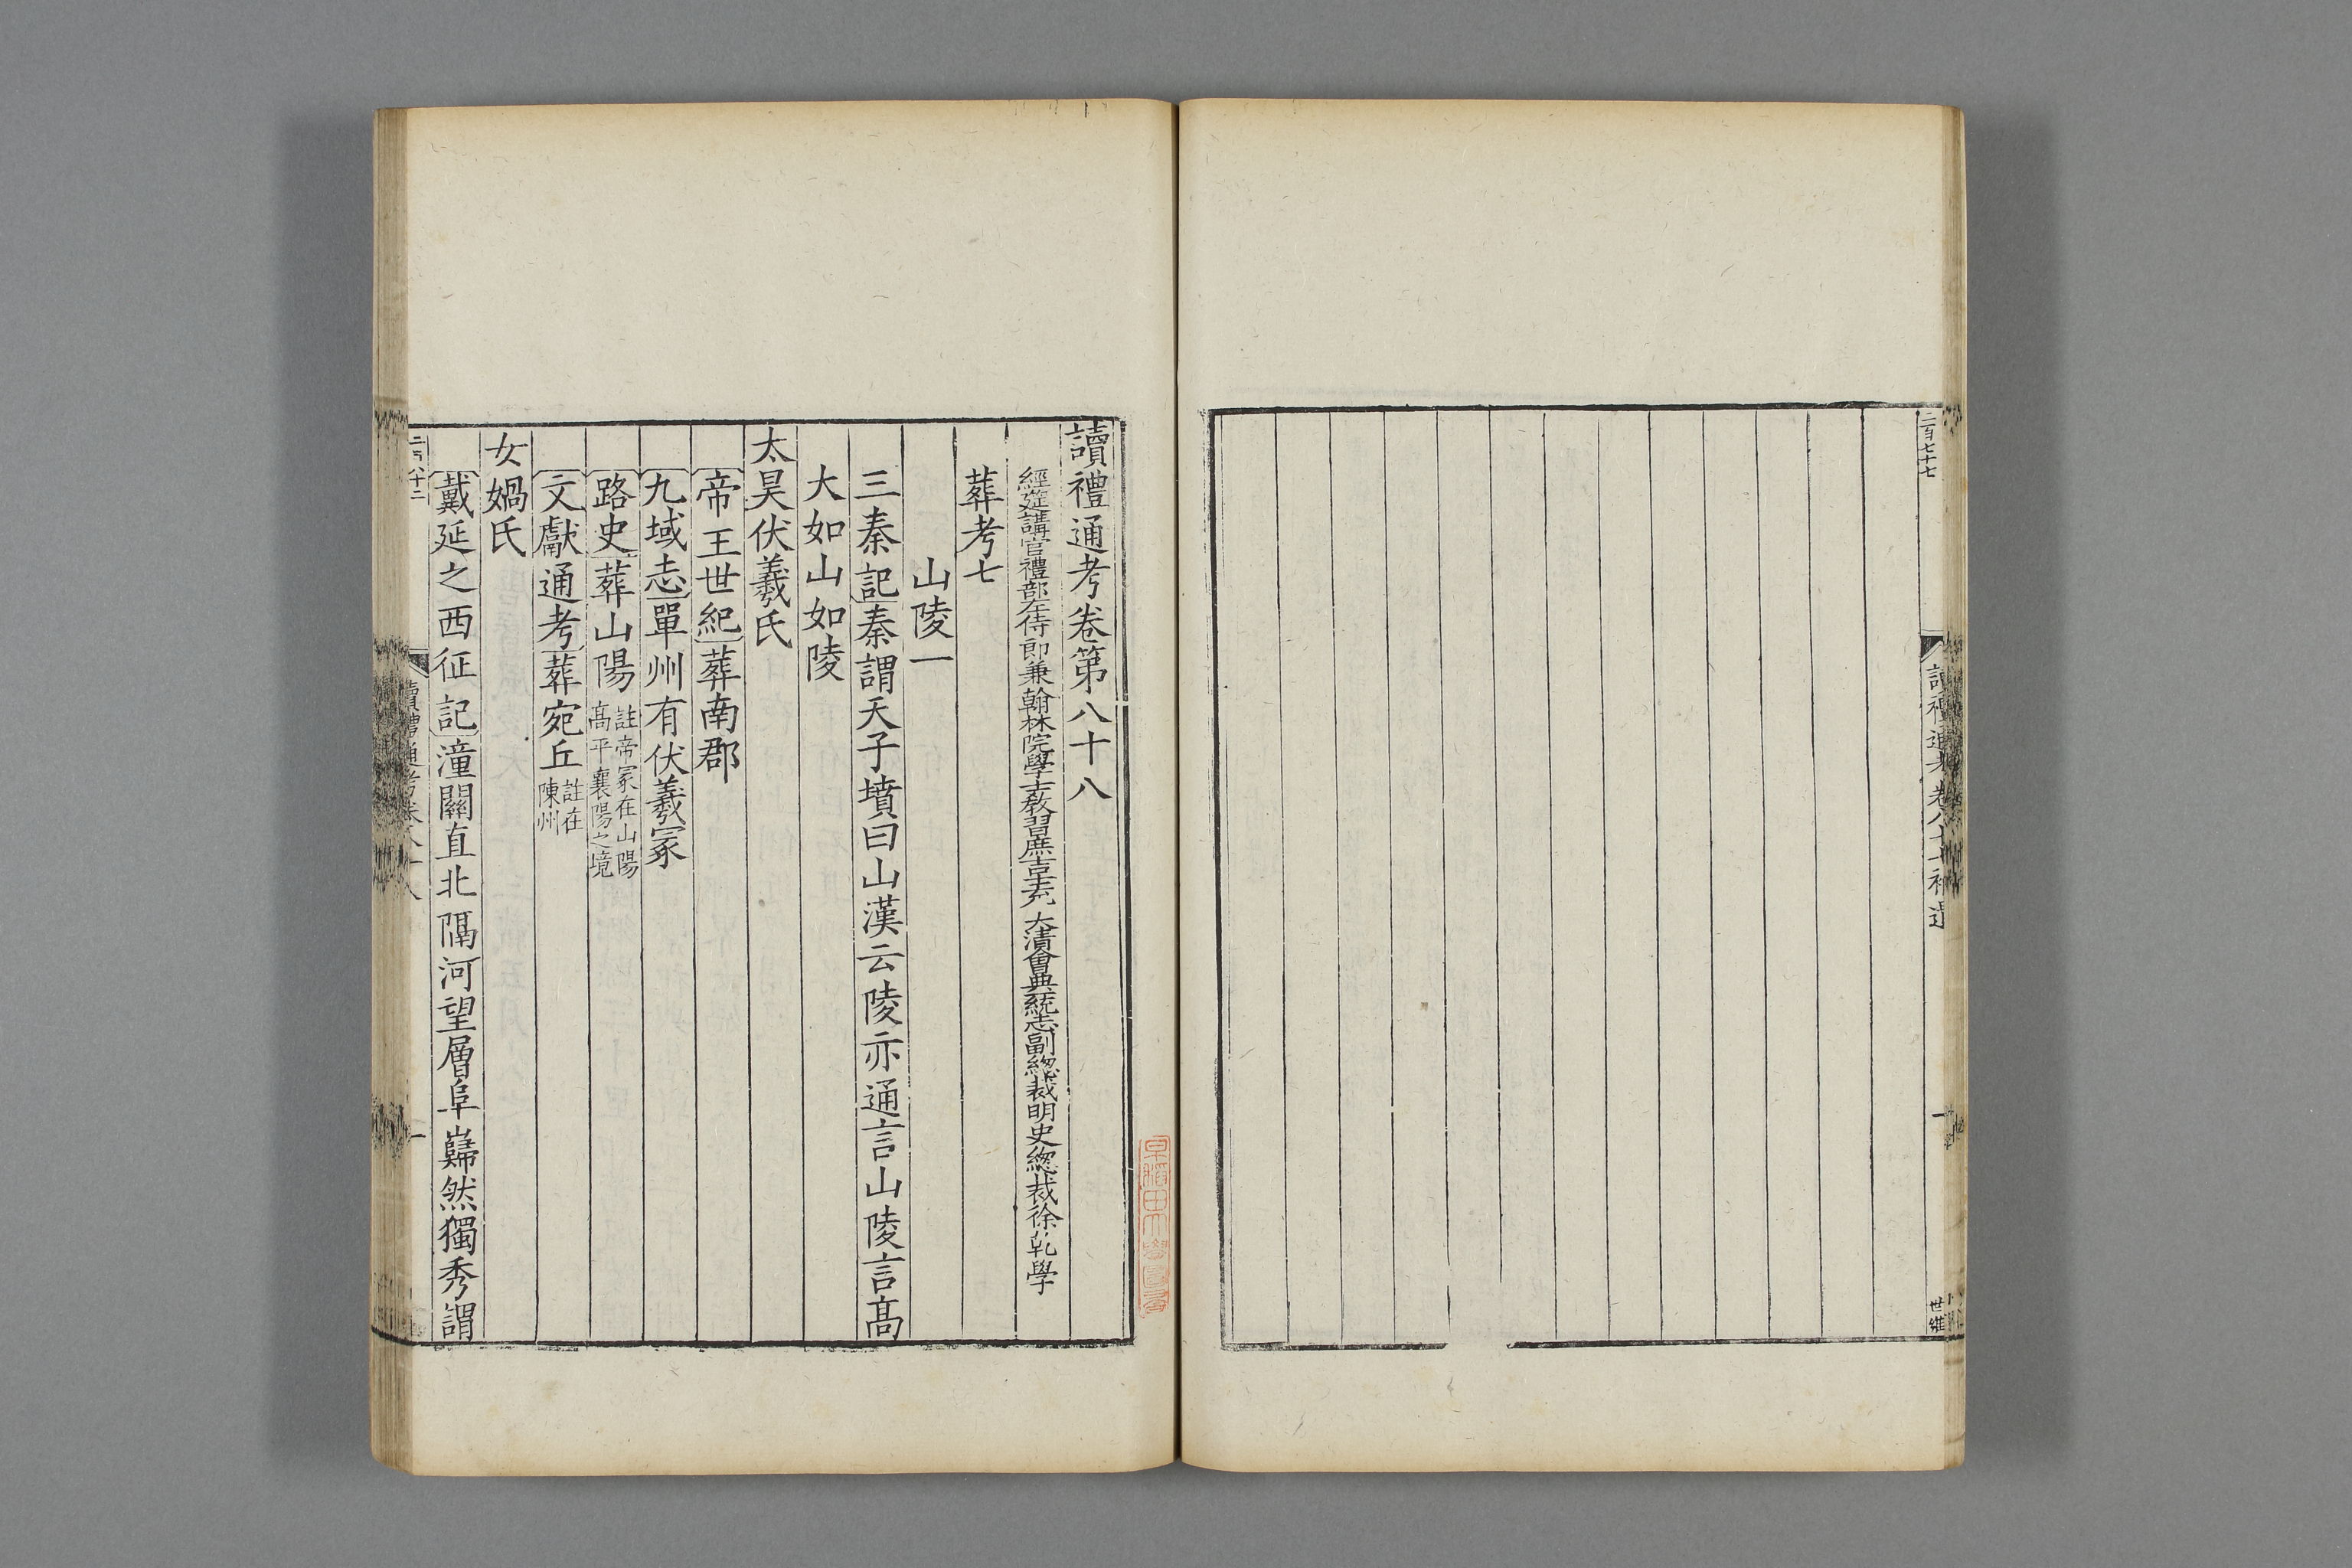 二百七十七
讀禮通考卷八十七補遺
一
世維
讀禮通考卷第八十八
經筵講官禮部左侍郎兼翰林院學士教習庶吉士充大清會典統志副總裁明史總裁徐乾學
葬考七
山陵一
三秦記秦謂天子墳曰山漢云陵亦通言山陵言高
大如山如陵
太昊伏羲氏
帝王世紀葬南郡
九域志單州有伏羲冢
路史葬山陽註帝冢在山陽
高平襄陽之境
文獻通考葬宛丘註在
陳州
女媧氏
戴延之西征記潼關直北隔河望層阜巋然獨秀謂
讀禮通考卷八十八
一
早稻田大學圖書